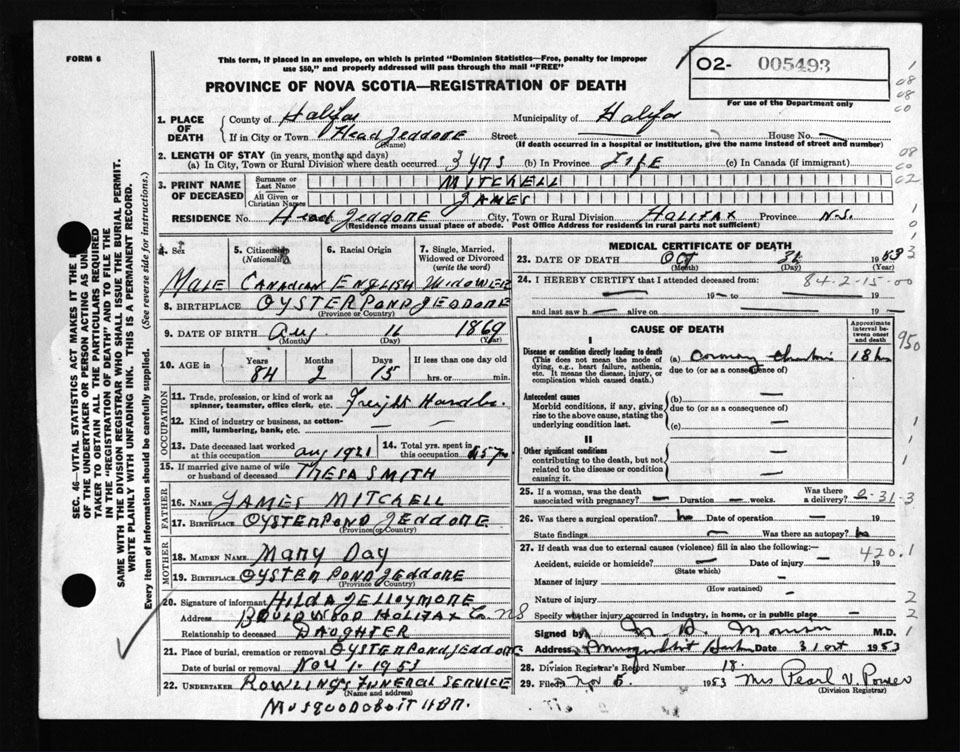 FORM 6
This form, if placed in an envelope, on which is printed "Dominion Statistics—Free, penalty for improper
use $50," and properly addressed will pass through the mail "FREE"
02- 005493
For use of the Department only
PROVINCE OF NOVA SCOTIA—REGISTRATION OF DEATH
1. PLACE OF DEATH
County of Halifax Municipality of Halifax
If in City or Town Head Jeddore Street House No. —
(Name) (If death occurred in a hospital or institution, give name instead of street and number)
2. LENGTH OF STAY (in years, months and days)
(a) In City, Town or Rural Division where death occurred 3 yrs (b) In Province LIFE (c) In Canada (if immigrant)
3. PRINT NAME OF DECEASED
Surname or Last Name MITCHELL
All Given or Christian Names JAMES
RESIDENCE No. Head Jeddore City, Town or Rural Division HALIFAX Province N.S.
(Residence means usual place of abode. Post Office Address for residents in rural parts not sufficient)
4. Sex 5. Citizenship (Nationality) 6. Racial Origin 7. Single, Married, Widowed or Divorced (write the word)
Male Canadian English Widower
8. BIRTHPLACE OYSTER POND JEDDORE
(Province or Country)
9. DATE OF BIRTH Aug 16 1869
(Month) (Day) (Year)
10. AGE in Years Months Days If less than one day old
84 2 15 hrs. or min.
OCCUPATION
11. Trade, profession, or kind of work as
spinner, teamster, office clerk, etc. Freight Handler
12. Kind of industry or business, as cotton-
mill, lumbering, bank, etc. — —
13. Date deceased last worked
at this occupation Aug 1921
14. Total yrs. spent in
this occupation
15. If married give name of wife
or husband of deceased THESA SMITH
FATHER
16. NAME JAMES MITCHELL
17. BIRTHPLACE OYSTER POND JEDDORE
(Province or Country)
MOTHER
18. MAIDEN NAME Mary Day
19. BIRTHPLACE OYSTER POND JEDDORE
(Province or Country)
20. Signature of informant HILDA JELLOYMORE
Address HALIFAX Co. NS
Relationship to deceased DAUGHTER
21. Place of burial, cremation or removal OYSTER POND JEDDORE
Date of burial or removal Nov 1. 1953
22. UNDERTAKER ROWLINGS FUNERAL SERVICE
(Name and address)
MUSQUODOBOIT HBR.
MEDICAL CERTIFICATE OF DEATH
23. DATE OF DEATH Oct 31 1953
(Month) (Day) (Year)
24. I HEREBY CERTIFY that I attended deceased from: 84-2-15-00
— 19 — to — 19
and last saw h — alive on — 19 —
CAUSE OF DEATH
Approximate interval between onset and death
I
Disease or condition directly leading to death
(This does not mean the mode of
dying, e.g., heart failure, asthenia,
etc. It means the disease, injury, or
complication which caused death.)
(a) Coronary 18 hrs
due to (or as a consequence of)
Antecedent causes
Morbid conditions, if any, giving
rise to the above cause, stating the
underlying condition last.
(b) —
due to (or as a consequence of)
(c) —
II
Other significant conditions
contributing to the death, but not
related to the disease or condition
causing it.
25. If a woman, was the death
associated with pregnancy? — Duration — weeks. Was there a delivery? 2-31-3
26. Was there a surgical operation? no Date of operation — 19
State findings — Was there an autopsy? no
27. If death was due to external causes (violence) fill in also the following:— 420.1
Accident, suicide or homicide? — Date of injury 19
(State which)
Manner of injury —
(How sustained)
Nature of injury —
Specify whether injury occurred in industry, in home, or in public place —
Signed by M.D.
Address Musquodoboit Harbor Date 31 Oct 1953
28. Division Registrar's Record Number 18.
29. Filed Nov 5. 1953 Mrs Pearl V. Power
(Division Registrar)
SEC. 46—VITAL STATISTICS ACT MAKES IT THE
OF THE UNDERTAKER OR PERSON ACTING AS UN
TAKER TO OBTAIN ALL THE PARTICULARS REQUIRED
IN THE "REGISTRATION OF DEATH" AND TO FILE THE
SAME WITH THE DIVISION REGISTRAR WHO SHALL ISSUE THE BURIAL PERMIT.
WRITE PLAINLY WITH UNFADING INK. THIS IS A PERMANENT RECORD.
Every item of information should be carefully supplied. (See reverse side for instructions.)